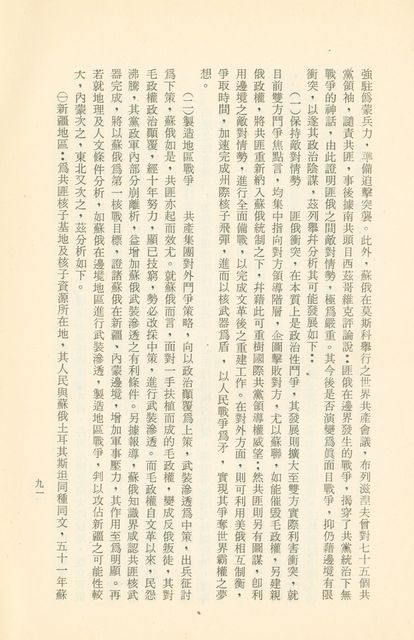 強駐僞蒙兵力，準備迫擊突襲。此外，蘇俄在莫斯科舉行之世界共產會議，布列滋湼夫曾對七十五個共
黨領袖，譴責共匪，事後據南共頭目西茲哥維克評論說：匪俄在邊界發生的戰爭，揭穿了共黨統治下無
戰爭的神話，由此證明匪俄之間敵對情勢，極爲嚴重。其今後是否演變爲眞面目戰爭，抑仍藉邊境有限
衝突，以遂其政治陰謀，茲列舉幷分析其可能發展如下：
㈠保持敵對情勢　匪俄衝突，在本質上是政治性鬥爭，其發展則擴大至雙方實際利害衝突，就
目前雙方鬥爭焦點言，均集中指向對方領導階層，企圖擊敗對方，尤以蘇聯，如能催毀毛政權，另建親
俄政權，將共匪重新納入蘇俄統制之下，幷藉此可重振國際共黨領導權威望；然共匪則另有圖謀，卽利
用邊境之敵對情勢，進行全面備戰，以完成文革後之重建工作。在對外方面，則可利用美俄相互制衡，
爭取時間，加速完成州際核子飛彈，進而以核武器爲盾，以人民戰爭爲矛，實現其爭奪世界霸權之夢
想。
㈡製造地區戰爭　共產集團對外鬥爭策略，向以政治顚覆爲上策，武裝滲透爲中策，出兵征討
爲下策，蘇俄如是，共匪亦起而效尤。就蘇俄而言，面對一手扶植而成的毛政權，變成反俄叛徒，其對
毛政權政治顚覆，經十年努力，顯已技窮，勢必改採中策，進行武裝滲透。而毛政權自文革以來，民怨
沸騰，其黨政軍內部分崩離析，益增加蘇俄武裝滲透之有利條件。另據報導，蘇俄知識界咸認共匪核武
器完成，將以蘇俄爲第一核戰目標，證諸蘇俄在新疆、內蒙邊境，增加軍事壓力，其作用至爲明顯。再
若就地理及人文條件分析，如蘇俄在邊境地區進行武裝滲透，製造地區戰爭，判以攻佔新疆之可能性較
大，內蒙次之，東北又次之，茲分析如下。
㈠新疆地區：爲共匪核子基地及核子資源所在地，其人民與蘇俄土耳其斯坦同種同文，五十一年蘇
九一